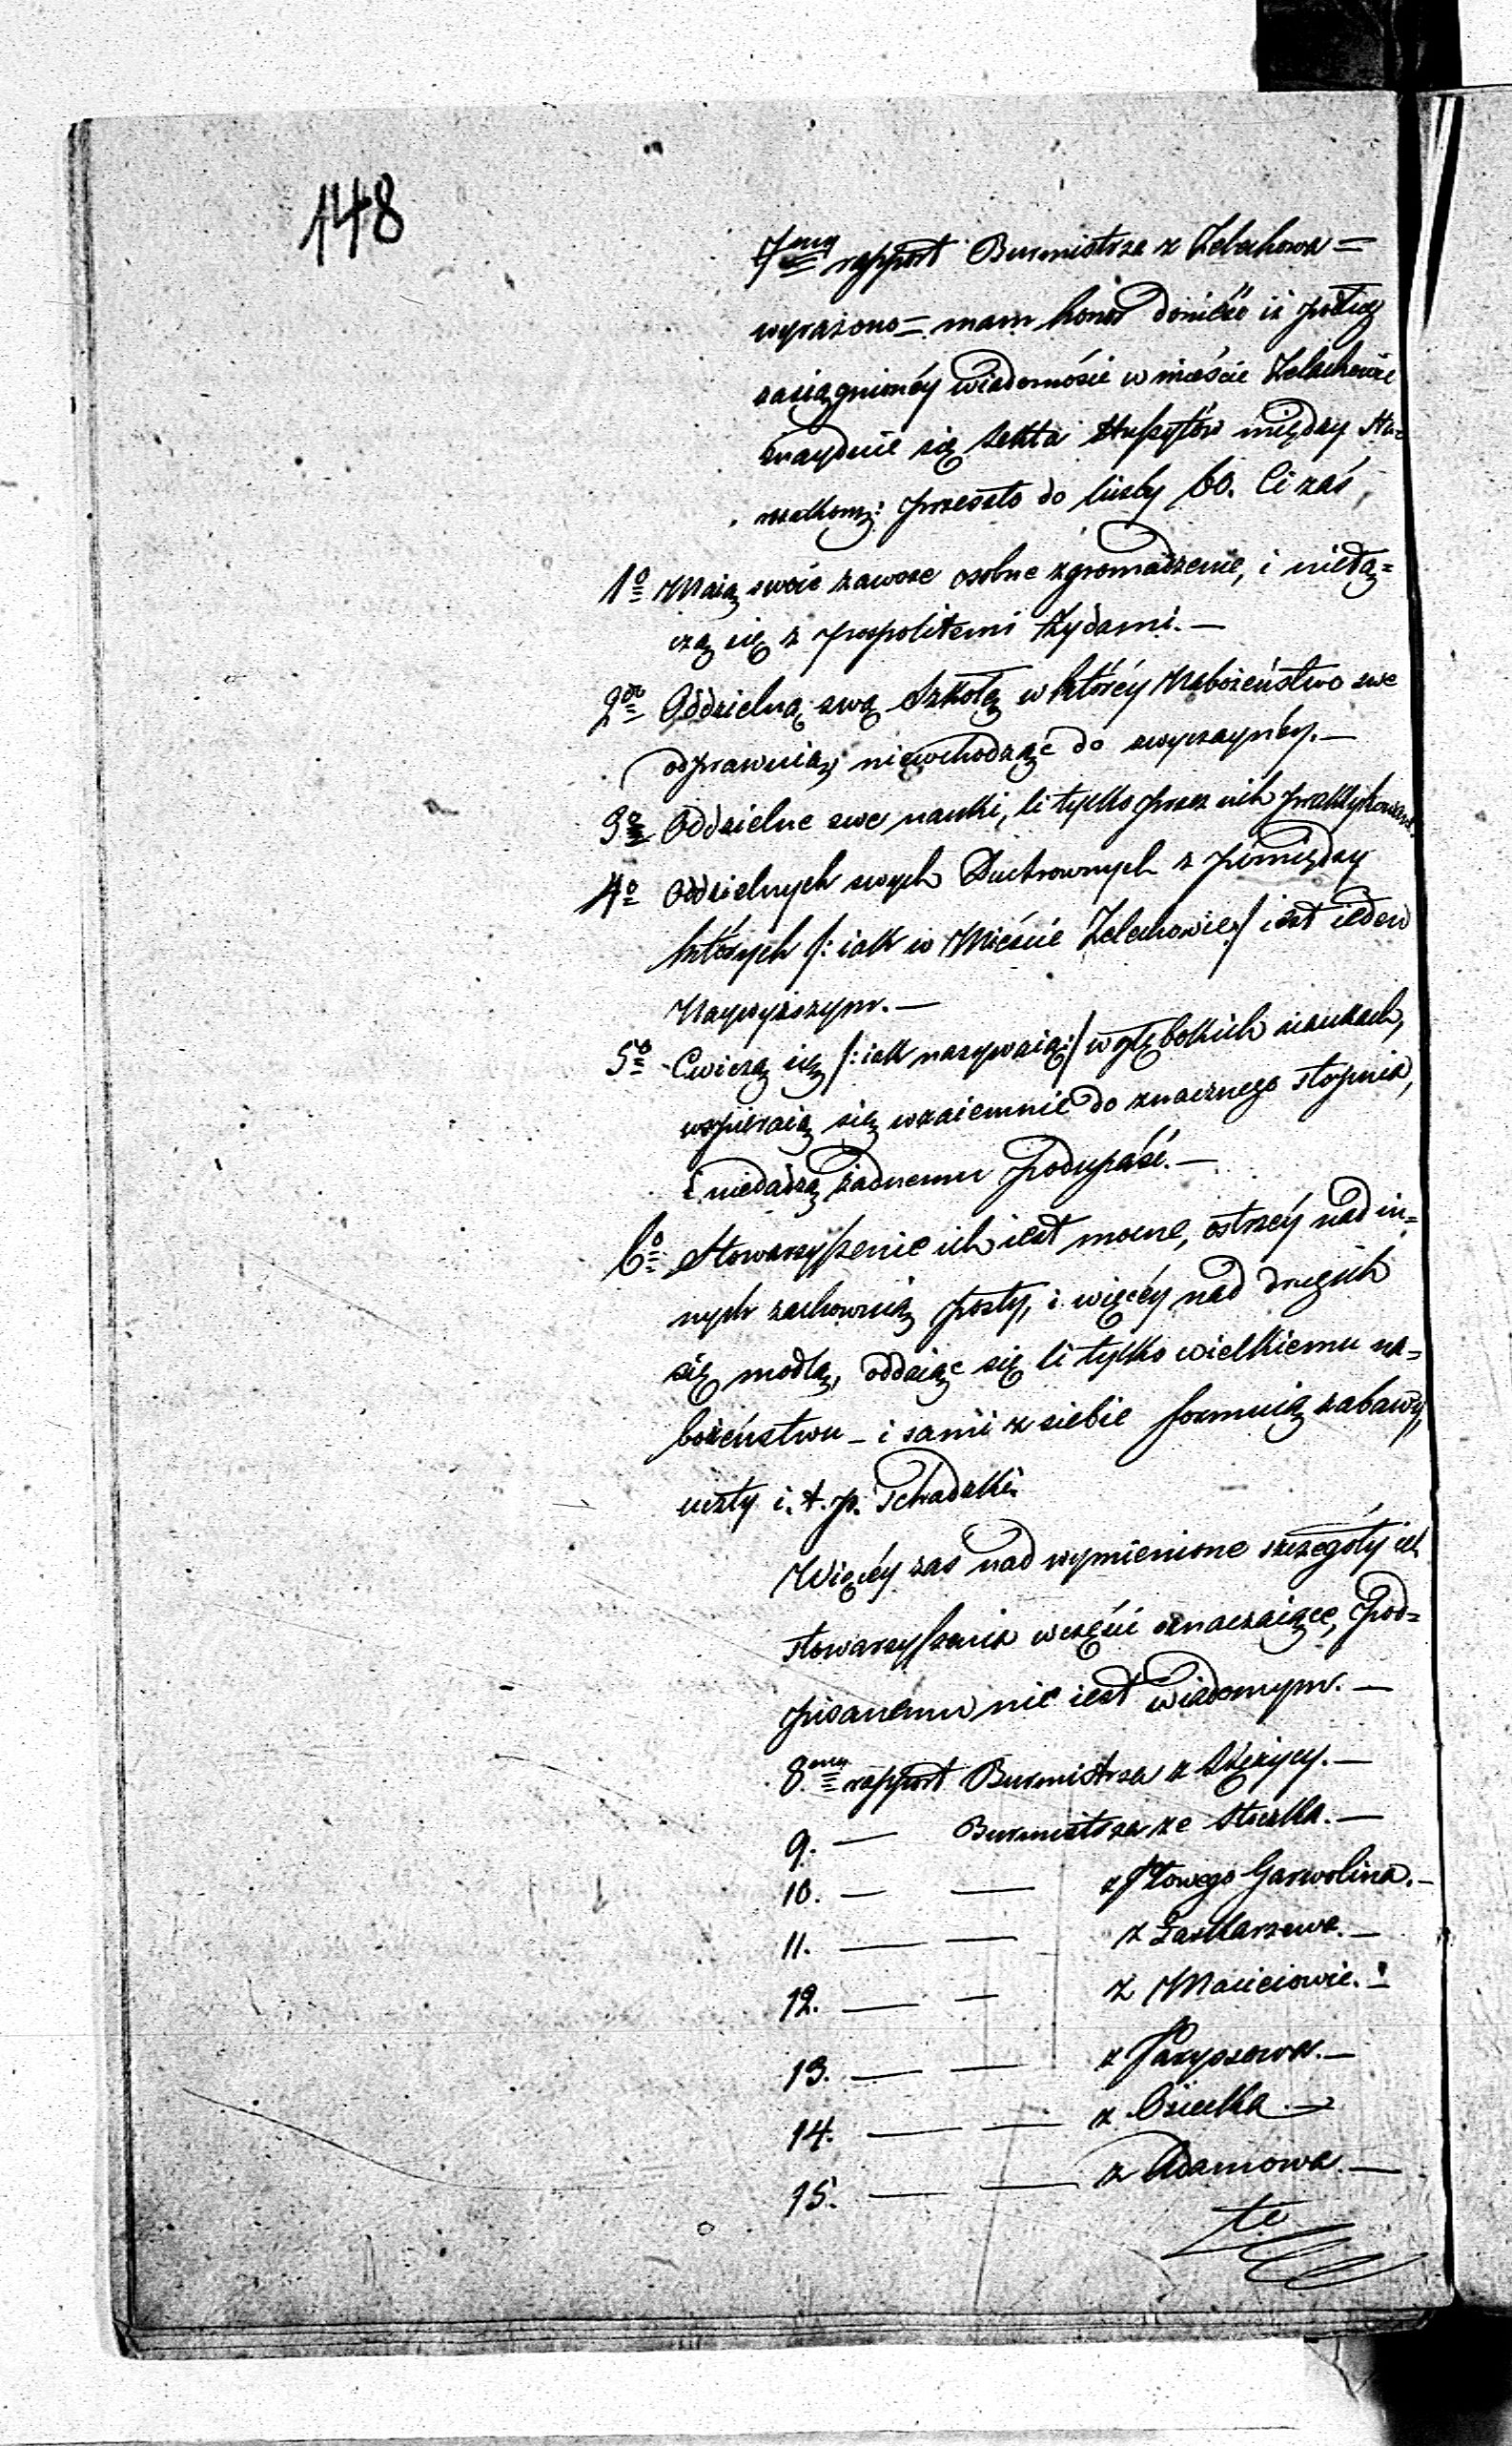 148
7my rapport Burmistrza z Żelechowa =
wyrażono = mam honor donieść iż podług
zasiągnioney wiadomości w mieście Żelechowie
znayduie się sekta Hussytów między Sta-
rozakonn: przeszło do liczby 60. Ci zaś
1o Maią swoie zawsze osobne zgromadzenie, i niełą=
czą się z pospolitemi Żydami. —
2do Oddzielną swą Szkołę w którey Nabożeństwo swe
odprawuią, niewchodząc do zwyczayney. —
3o Oddzielne swe nauki, li tylko przez nich praktykowane
4o Oddzielnych swych Duchownych z pomiędzy
których /: iak w Mieście Żelechowie :/ iest ieden
Naywyższym. —
5o Cwiczą się /: iak nazywaią :/ w głębokich naukach,
wspieraią się wzaiemnie do znacznego stopnia,
i niedadzą żadnemu podupaść. —
6o Stowarzyszenie ich iest mocne, ostrzey nad in=
nych zachowuią posty, i więcey nad drugich
się modlą, oddaiąc się li tylko wielkiemu na=
bożeństwu – i sami z siebie formuią zabawy,
uczty i. t. p. Schadzki.
Więcey zaś nad wymienione szczegóły ich
stowarzyszenia w części oznaczaiące, Pod=
pisanemu nie iest wiadomym. —
8my rapport Burmistrza z Stężycy. —
9. — Burmistrza ze Stoczka. —
10. — — z Nowego Garwolina. —
11. — — z Łaskarzewa. —
12. — — z Macieiowic. —
13. — — z Parysowa. —
14. — — z Osiecka. —
15. — — z Adamowa. —
te